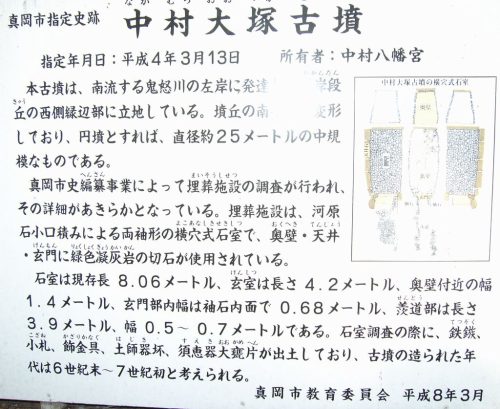 真岡市指定史跡
なかむらおおつかこふん
中村大塚古墳
指定年月日：平成4年3月13日　所有者：中村八幡宮
本古墳は、南流する鬼怒川の左岸に発達 岸段
丘の西側縁辺部に立地している。墳丘の南 変形
しており、円墳とすれば、直径約25メートルの中規
模なものである。
真岡市史編纂事業によって埋葬施設の調査が行われ、
その詳細があきらかとなっている。埋葬施設は、河原
石小口積みによる両袖形の横穴式石室で、奥壁・天井
・玄門に緑色凝灰岩の切石が使用されている。
石室は現存長 8.06メートル、玄室は長さ 4.2メートル、奥壁付近の幅
1.4メートル、玄門部内幅は袖石内面で 0.68メートル、羨道部は長さ
3.9メートル、幅 0.5～0.7メートルである。石室調査の際に、鉄鏃、
小札、飾金具、土師器坏、須恵器大甕片が出土しており、古墳の造られた年
代は6世紀末～7世紀初と考えられる。
真岡市教育委員会　平成8年3月
中村大塚古墳の横穴式石室
奥壁